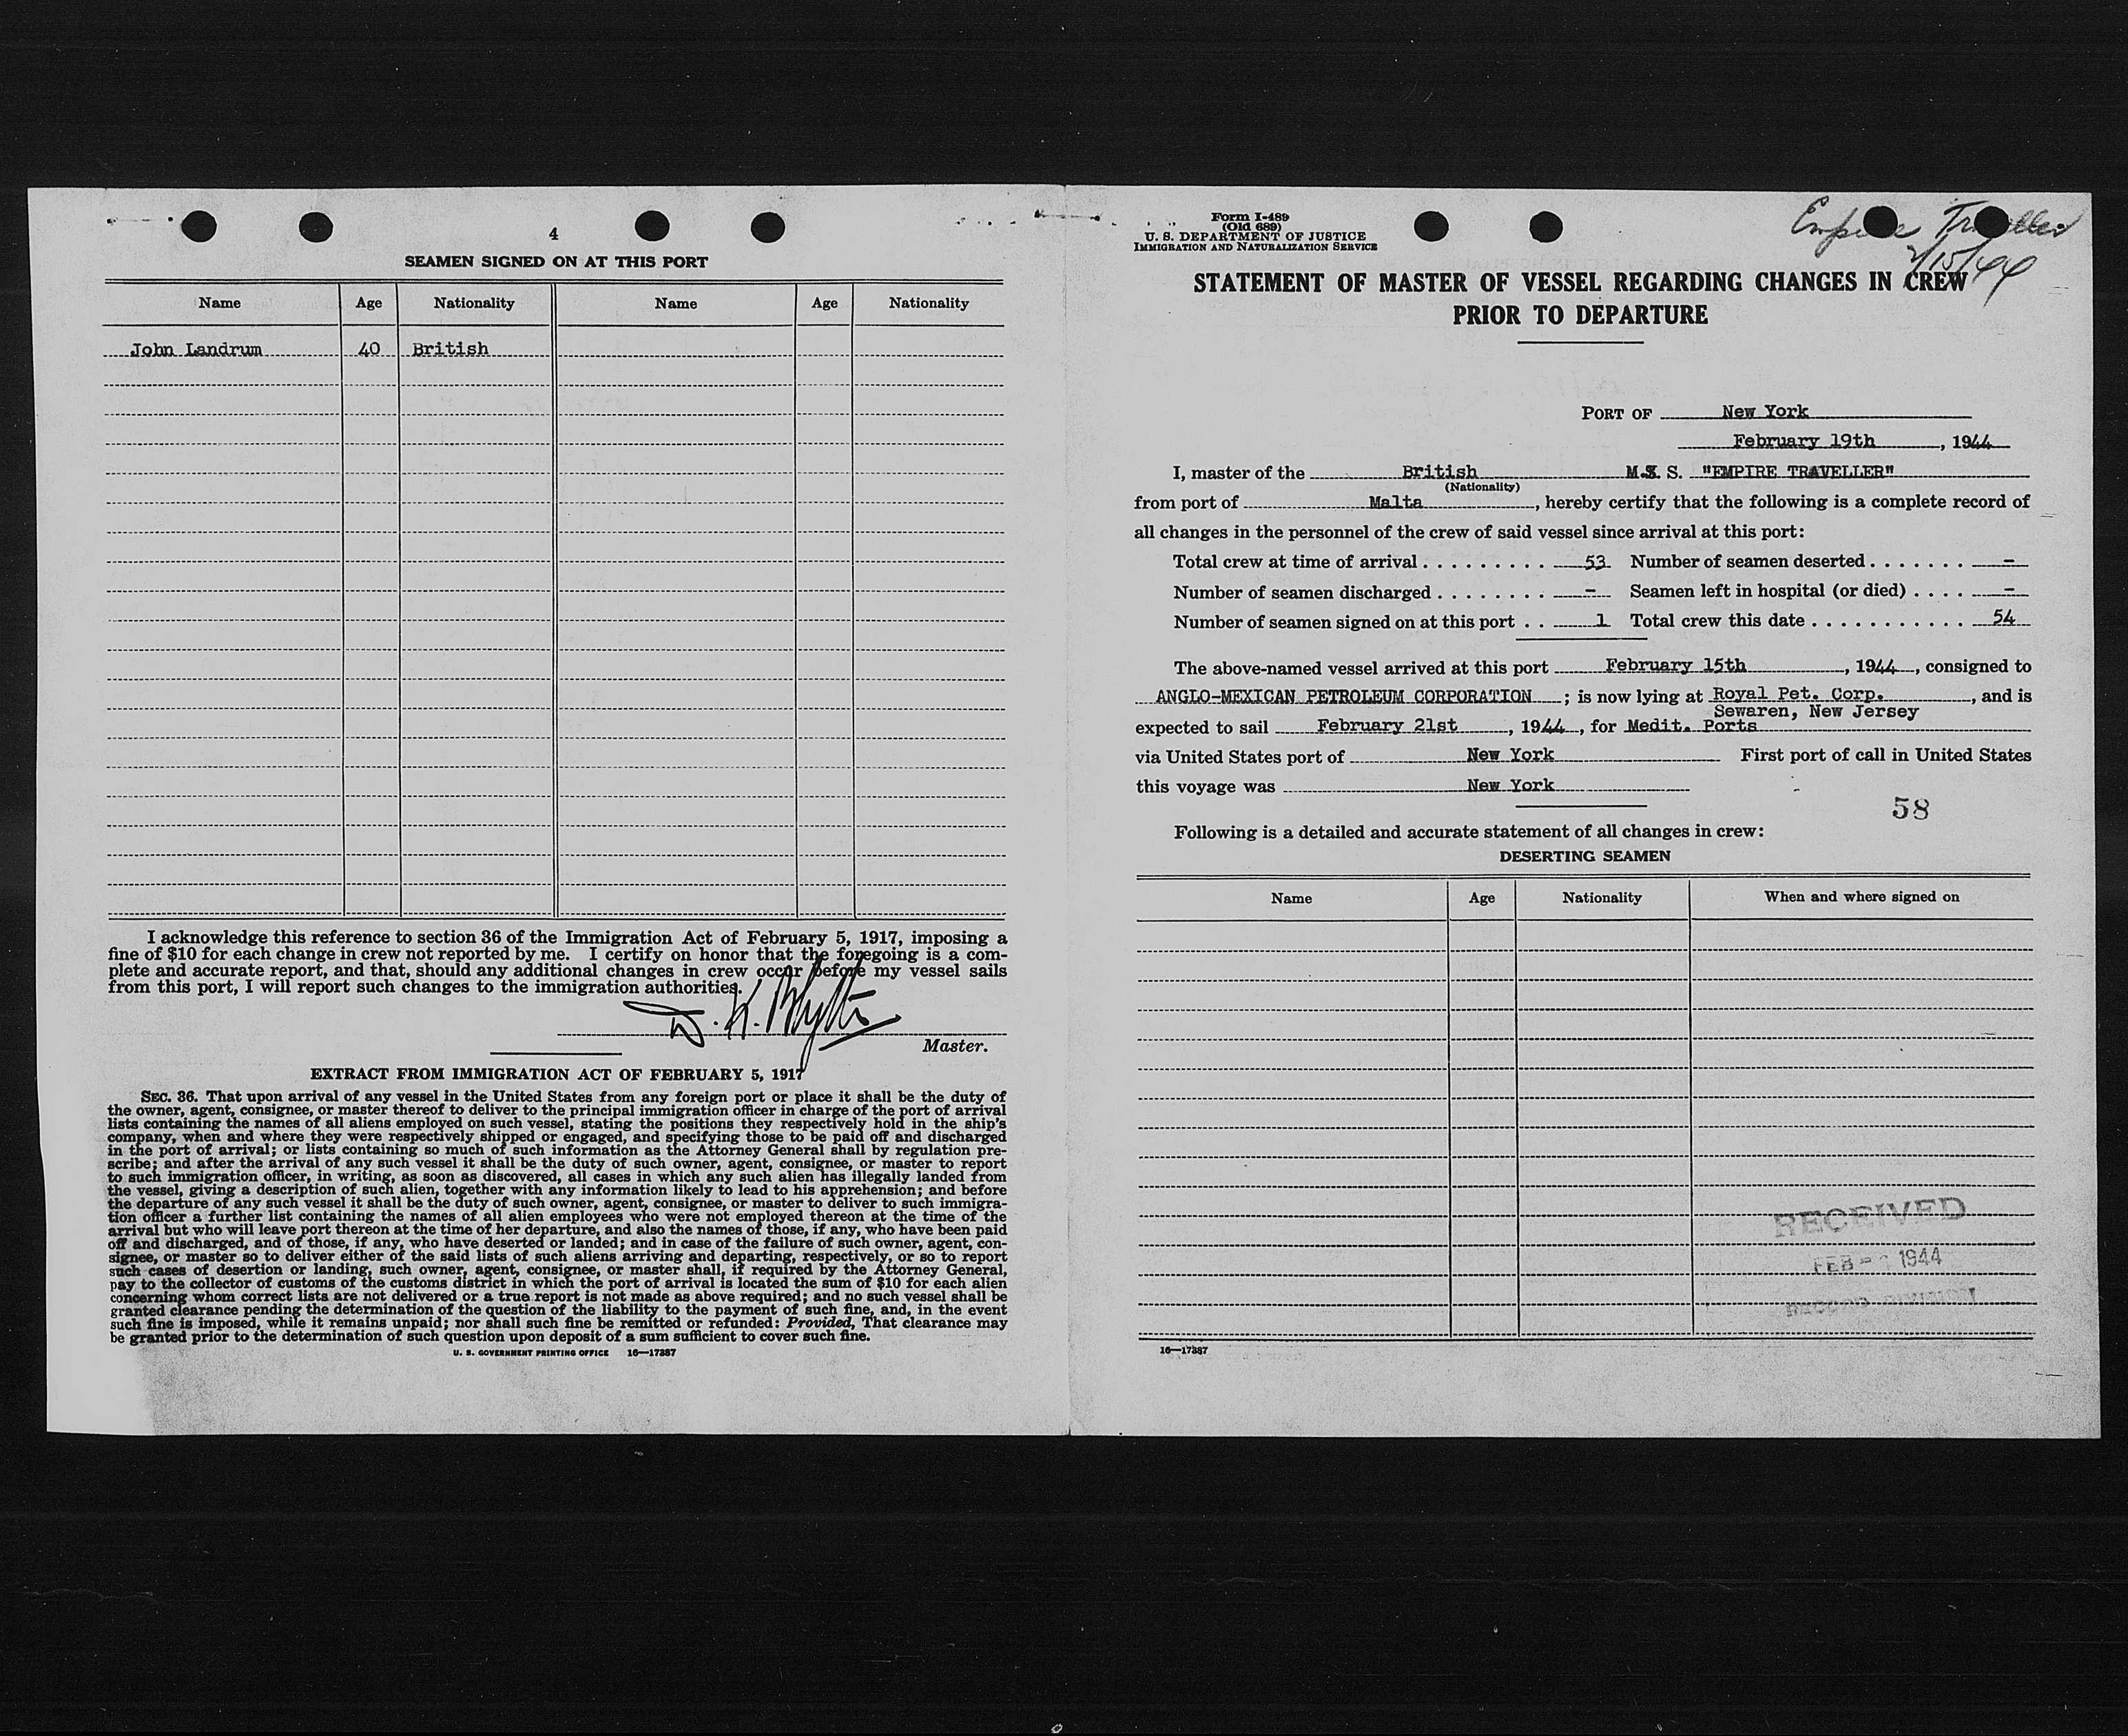 4
SEAMEN SIGNED ON AT THIS PORT
Name Age Nationality Name Age Nationality
John Landrum 40 British
I acknowledge this reference to section 36 of the Immigration Act of February 5, 1917, imposing a
fine of $10 for each change in crew not reported by me. I certify on honor that the foregoing is a com-
plete and accurate report, and that, should any additional changes in crew occur before my vessel sails
from this port, I will report such changes to the immigration authorities.
Master.
EXTRACT FROM IMMIGRATION ACT OF FEBRUARY 5, 1917
SEC. 36. That upon arrival of any vessel in the United States from any foreign port or place it shall be the duty of
the owner, agent, consignee, or master thereof to deliver to the principal immigration officer in charge of the port of arrival
lists containing the names of all aliens employed on such vessel, stating the positions they respectively hold in the ship's
company, when and where they were respectively shipped or engaged, and specifying those to be paid off and discharged
in the port of arrival; or lists containing so much of such information as the Attorney General shall by regulation pre-
scribe; and after the arrival of any such vessel it shall be the duty of such owner, agent, consignee, or master to report
to such immigration officer, in writing, as soon as discovered, all cases in which any such alien has illegally landed from
the vessel, giving a description of such alien, together with any information likely to lead to his apprehension; and before
the departure of any such vessel it shall be the duty of such owner, agent, consignee, or master to deliver to such immigra-
tion officer a further list containing the names of all alien employees who were not employed thereon at the time of the
arrival but who will leave port thereon at the time of her departure, and also the names of those, if any, who have been paid
off and discharged, and of those, if any, who have deserted or landed; and in case of the failure of such owner, agent, con-
signee, or master so to deliver either of the said lists of such aliens arriving and departing, respectively, or so to report
such cases of desertion or landing, such owner, agent, consignee, or master shall, if required by the Attorney General,
pay to the collector of customs of the customs district in which the port of arrival is located the sum of $10 for each alien
concerning whom correct lists are not delivered or a true report is not made as above required; and no such vessel shall be
granted clearance pending the determination of the question of the liability to the payment of such fine, and, in the event
such fine is imposed, while it remains unpaid; nor shall such fine be remitted or refunded: Provided, That clearance may
be granted prior to the determination of such question upon deposit of a sum sufficient to cover such fine.
U. S. GOVERNMENT PRINTING OFFICE 16—17387
Form I-489
(Old 689)
U. S. DEPARTMENT OF JUSTICE
IMMIGRATION AND NATURALIZATION SERVICE
Empire Traveller
2/15/44
STATEMENT OF MASTER OF VESSEL REGARDING CHANGES IN CREW
PRIOR TO DEPARTURE
PORT OF New York
February 19th, 1944
I, master of the British M. S. "EMPIRE TRAVELLER"
(Nationality)
from port of Malta, hereby certify that the following is a complete record of
all changes in the personnel of the crew of said vessel since arrival at this port:
Total crew at time of arrival . . . . . . . . . 53 Number of seamen deserted . . . . . . . –
Number of seamen discharged . . . . . . . . – Seamen left in hospital (or died) . . . . –
Number of seamen signed on at this port . . 1 Total crew this date . . . . . . . . . . . 54
The above-named vessel arrived at this port February 15th, 1944, consigned to
ANGLO-MEXICAN PETROLEUM CORPORATION; is now lying at Royal Pet. Corp., and is
Sewaren, New Jersey
expected to sail February 21st, 1944, for Medit. Ports
via United States port of New York First port of call in United States
this voyage was New York
58
Following is a detailed and accurate statement of all changes in crew:
DESERTING SEAMEN
Name Age Nationality When and where signed on
RECEIVED
FEB 1944
RECORD DIVISION
16—17387